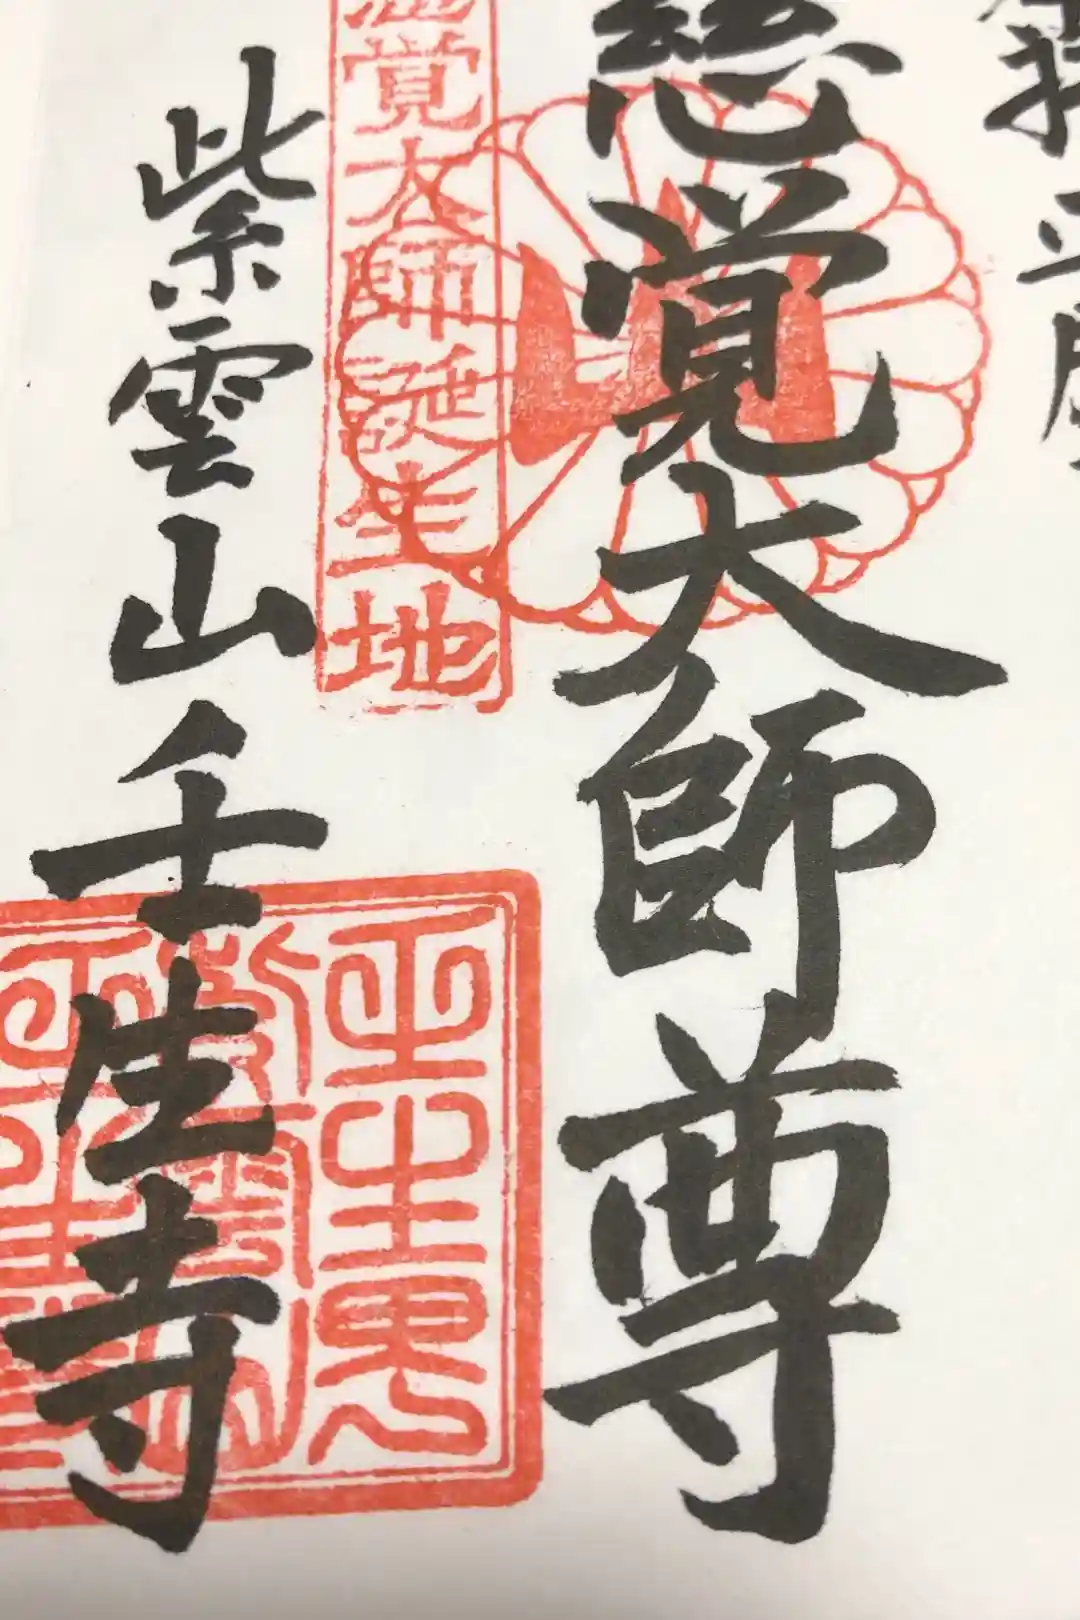 奉拝 平成
慈覚大師尊
慈覚大師誕生地
紫雲山壬生寺